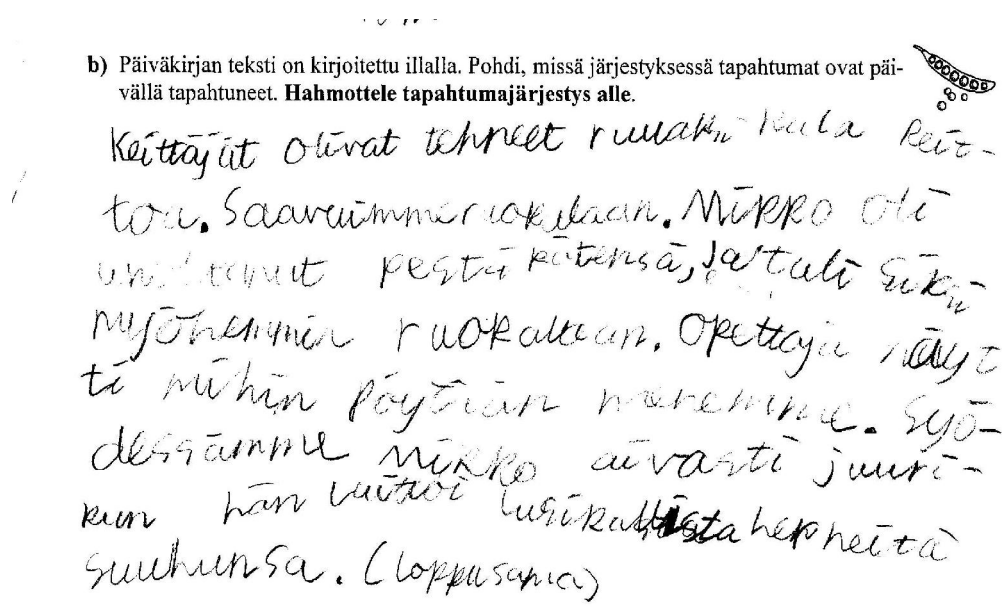 b) Päiväkirjan teksti on kirjoitettu illalla. Pohdi, missä järjestyksessä tapahtumat ovat päi-
vällä tapahtuneet. Hahmottele tapahtumajärjestys alle.
Keittäjät olivat tehneet ruuaksi kala keit-
toa. Saavuimme ruokalaan. Mikko oli
unohtanut pestä kätensä, ja tuli siksi
myöhemmin ruokalaan. Opettaja näyt
ti mihin pöytään menemme. Syö-
dessämme Mikko aivasti juuri-
kun hän laittoi lusikallista herneitä
suuhunsa. (loppusania)